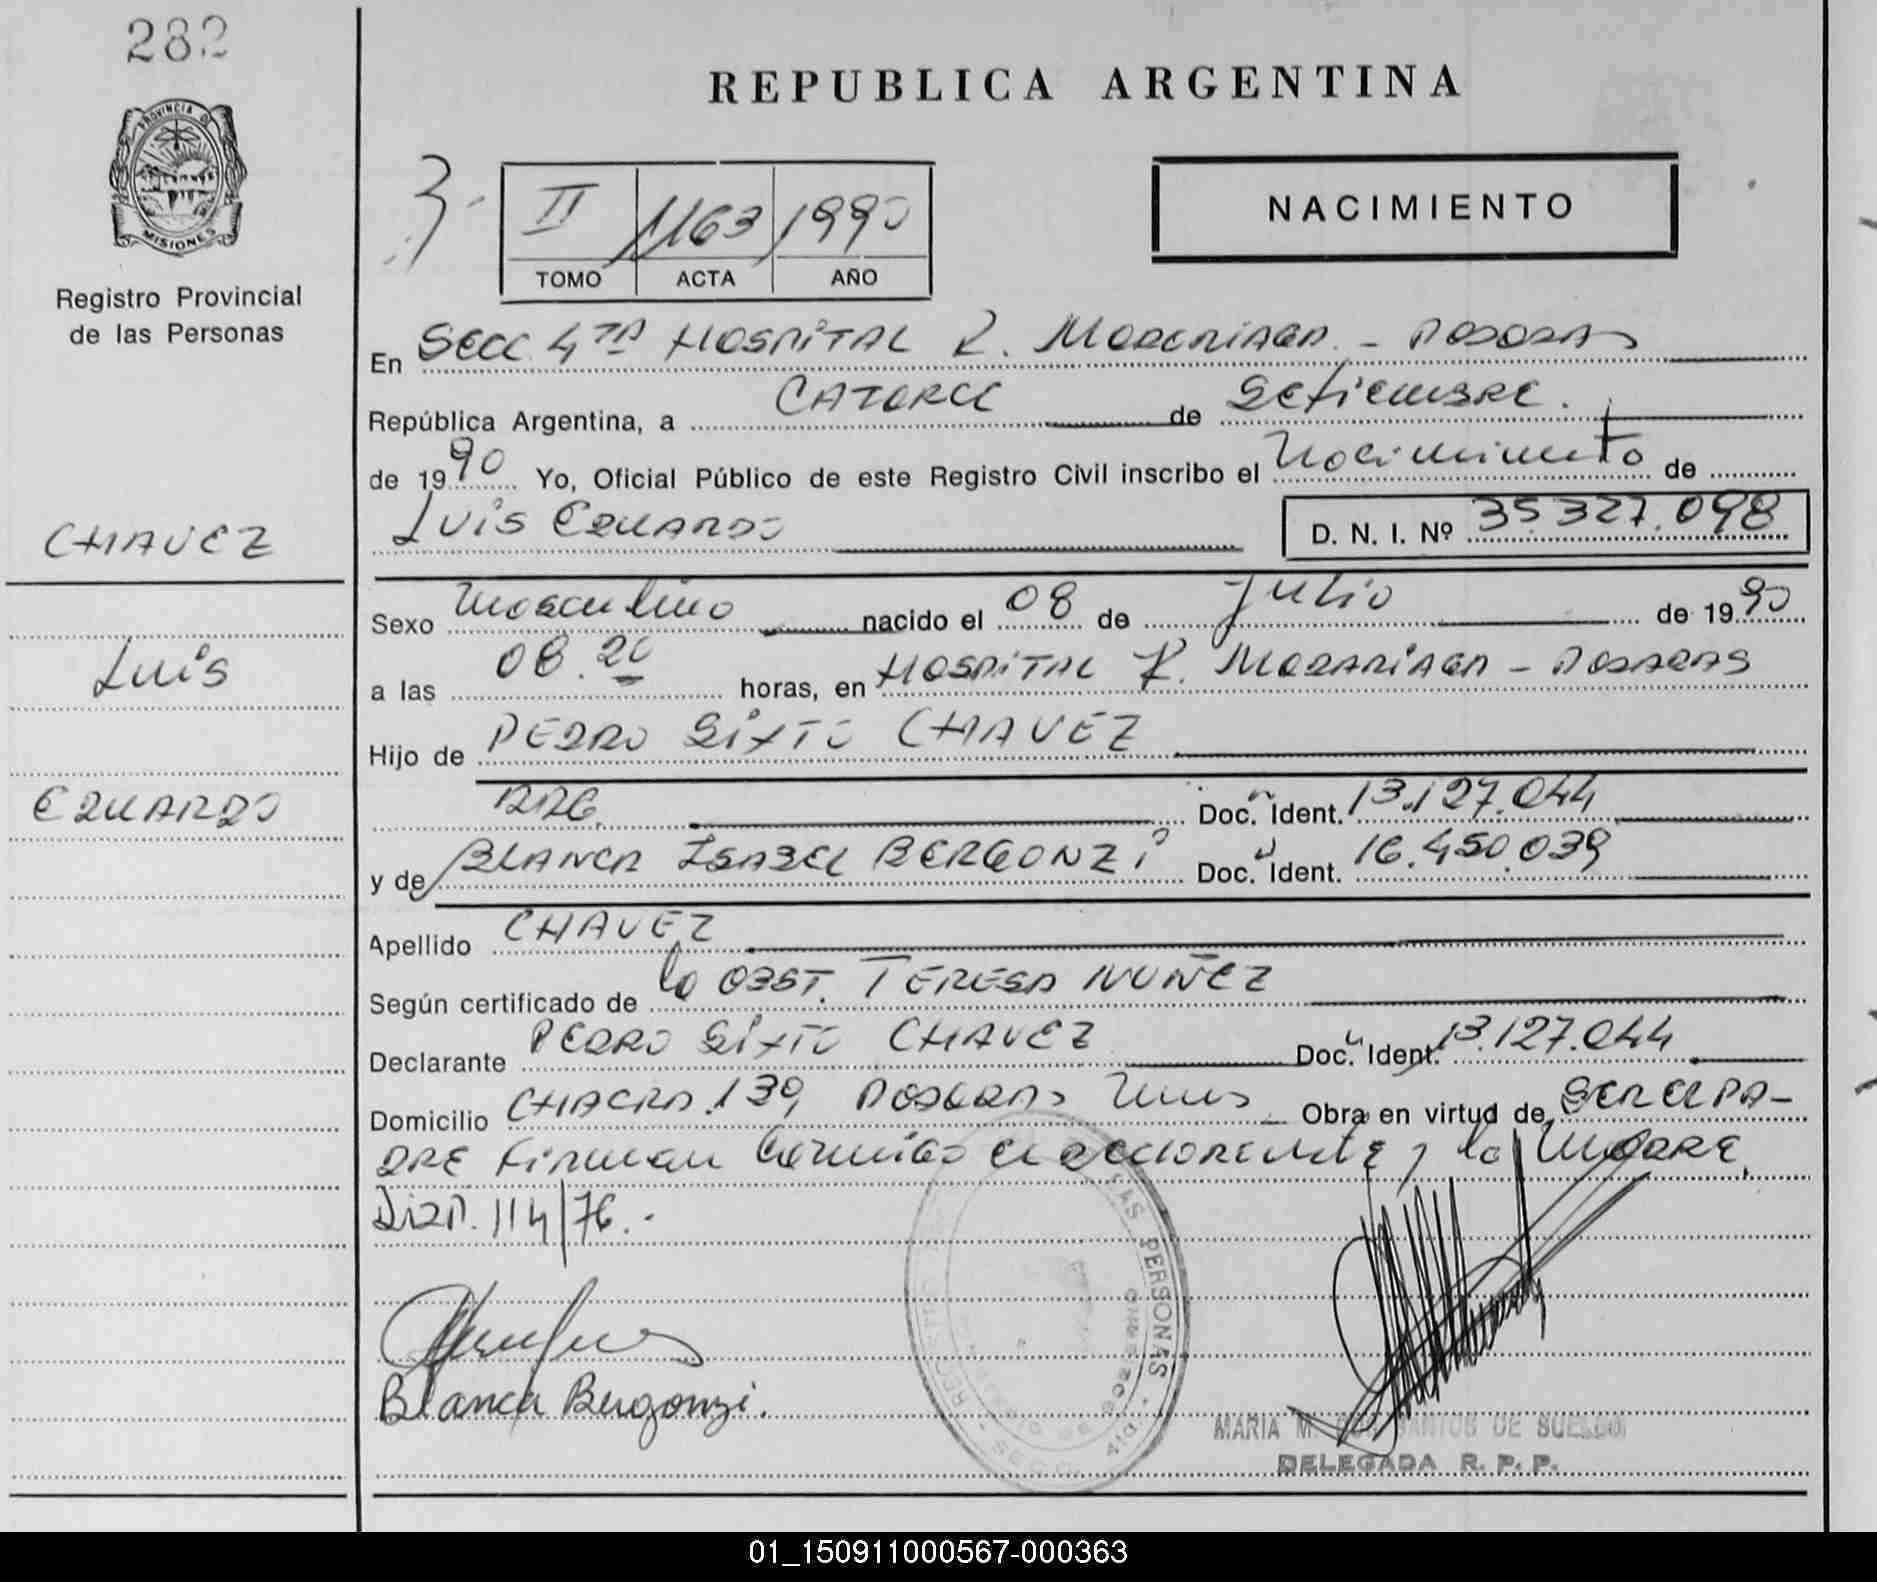 282
PROVINCIA DE
MISIONES
Registro Provincial
de las Personas
CHAVEZ
Luis
EDUARDO
REPUBLICA ARGENTINA
3-
II 1163 1990
TOMO ACTA AÑO
NACIMIENTO
En Secc 4TA HOSPITAL R. MADARIAGA - POSADAS
República Argentina, a CATORCE de Setiembre.
de 1990 Yo, Oficial Público de este Registro Civil inscribo el Nacimiento de
LUIS EDUARDO D. N. I. Nº 35327.098
Sexo Masculino nacido el 08 de Julio de 1990
a las 08.20 horas, en HOSPITAL R. MADARIAGA - POSADAS
Hijo de PEDRO SIXTO CHAVEZ
ARG. Doc. Ident. 13.127.044
y de BLANCA ISABEL BERGONZI Doc. Ident. 16.450.039
Apellido CHAVEZ
Según certificado de la OBST. TERESA NUÑEZ
Declarante PEDRO SIXTO CHAVEZ Doc. Ident. 13.127.044
Domicilio CHACRA 139, POSADAS Mnes Obra en virtud de SER EL PA-
DRE firman conmigo el declarante y la MADRE,
DISP. 114/76.-
Blanca Bergonzi.
LAS PERSONAS
MARIA M. DOS SANTOS DE SUELDO
DELEGADA R. P. P.
01_150911000567-000363